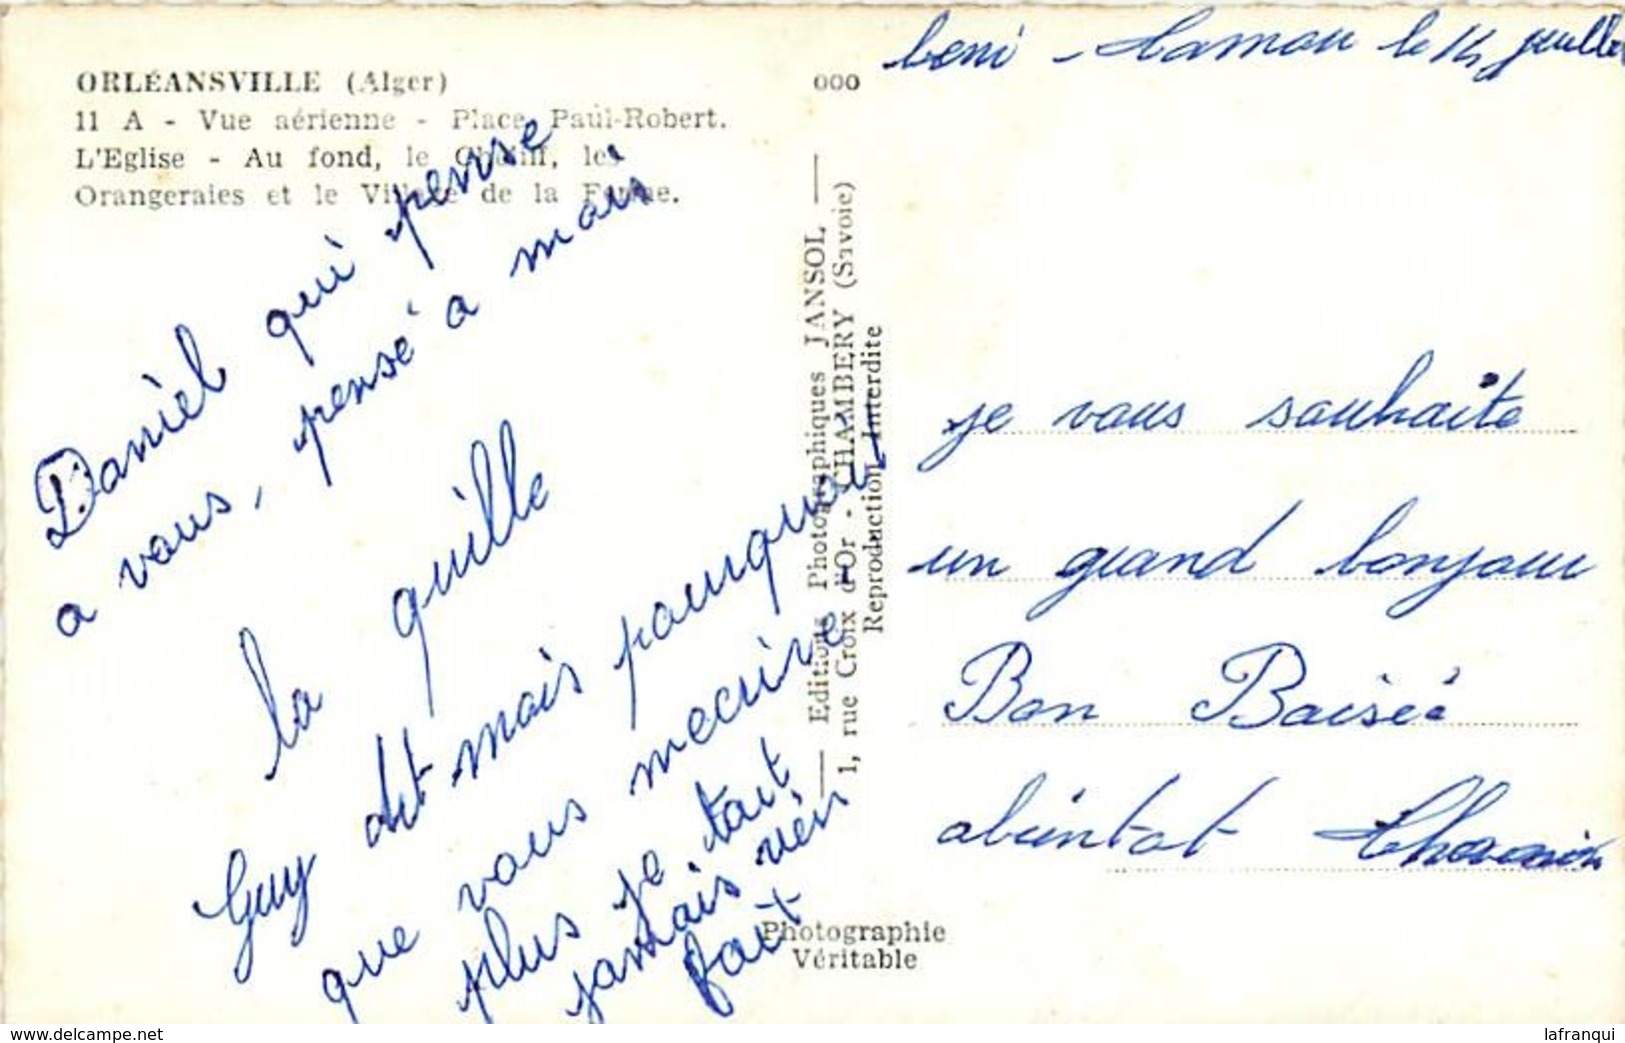 ORLÉANSVILLE (Alger)
11 A - Vue aérienne - Place Paul-Robert.
L'Eglise - Au fond, le Chéliff, les
Orangeraies et le Village de la Ferme.
Daniel qui pense
a vous, pensé a moi
la quille
Guy dit mais pourquoi
que vous mecrire
plus je tait
jamais rien
fait
000
Editions Photographiques JANSOL
1, rue Croix d'Or - CHAMBERY (Savoie)
Reproduction Interdite
Photographie
Véritable
beni - le 14 juillet
je vous souhaite
un grand bonjour
Bon Baisé
abientot
www.delcampe.net
lafranqui